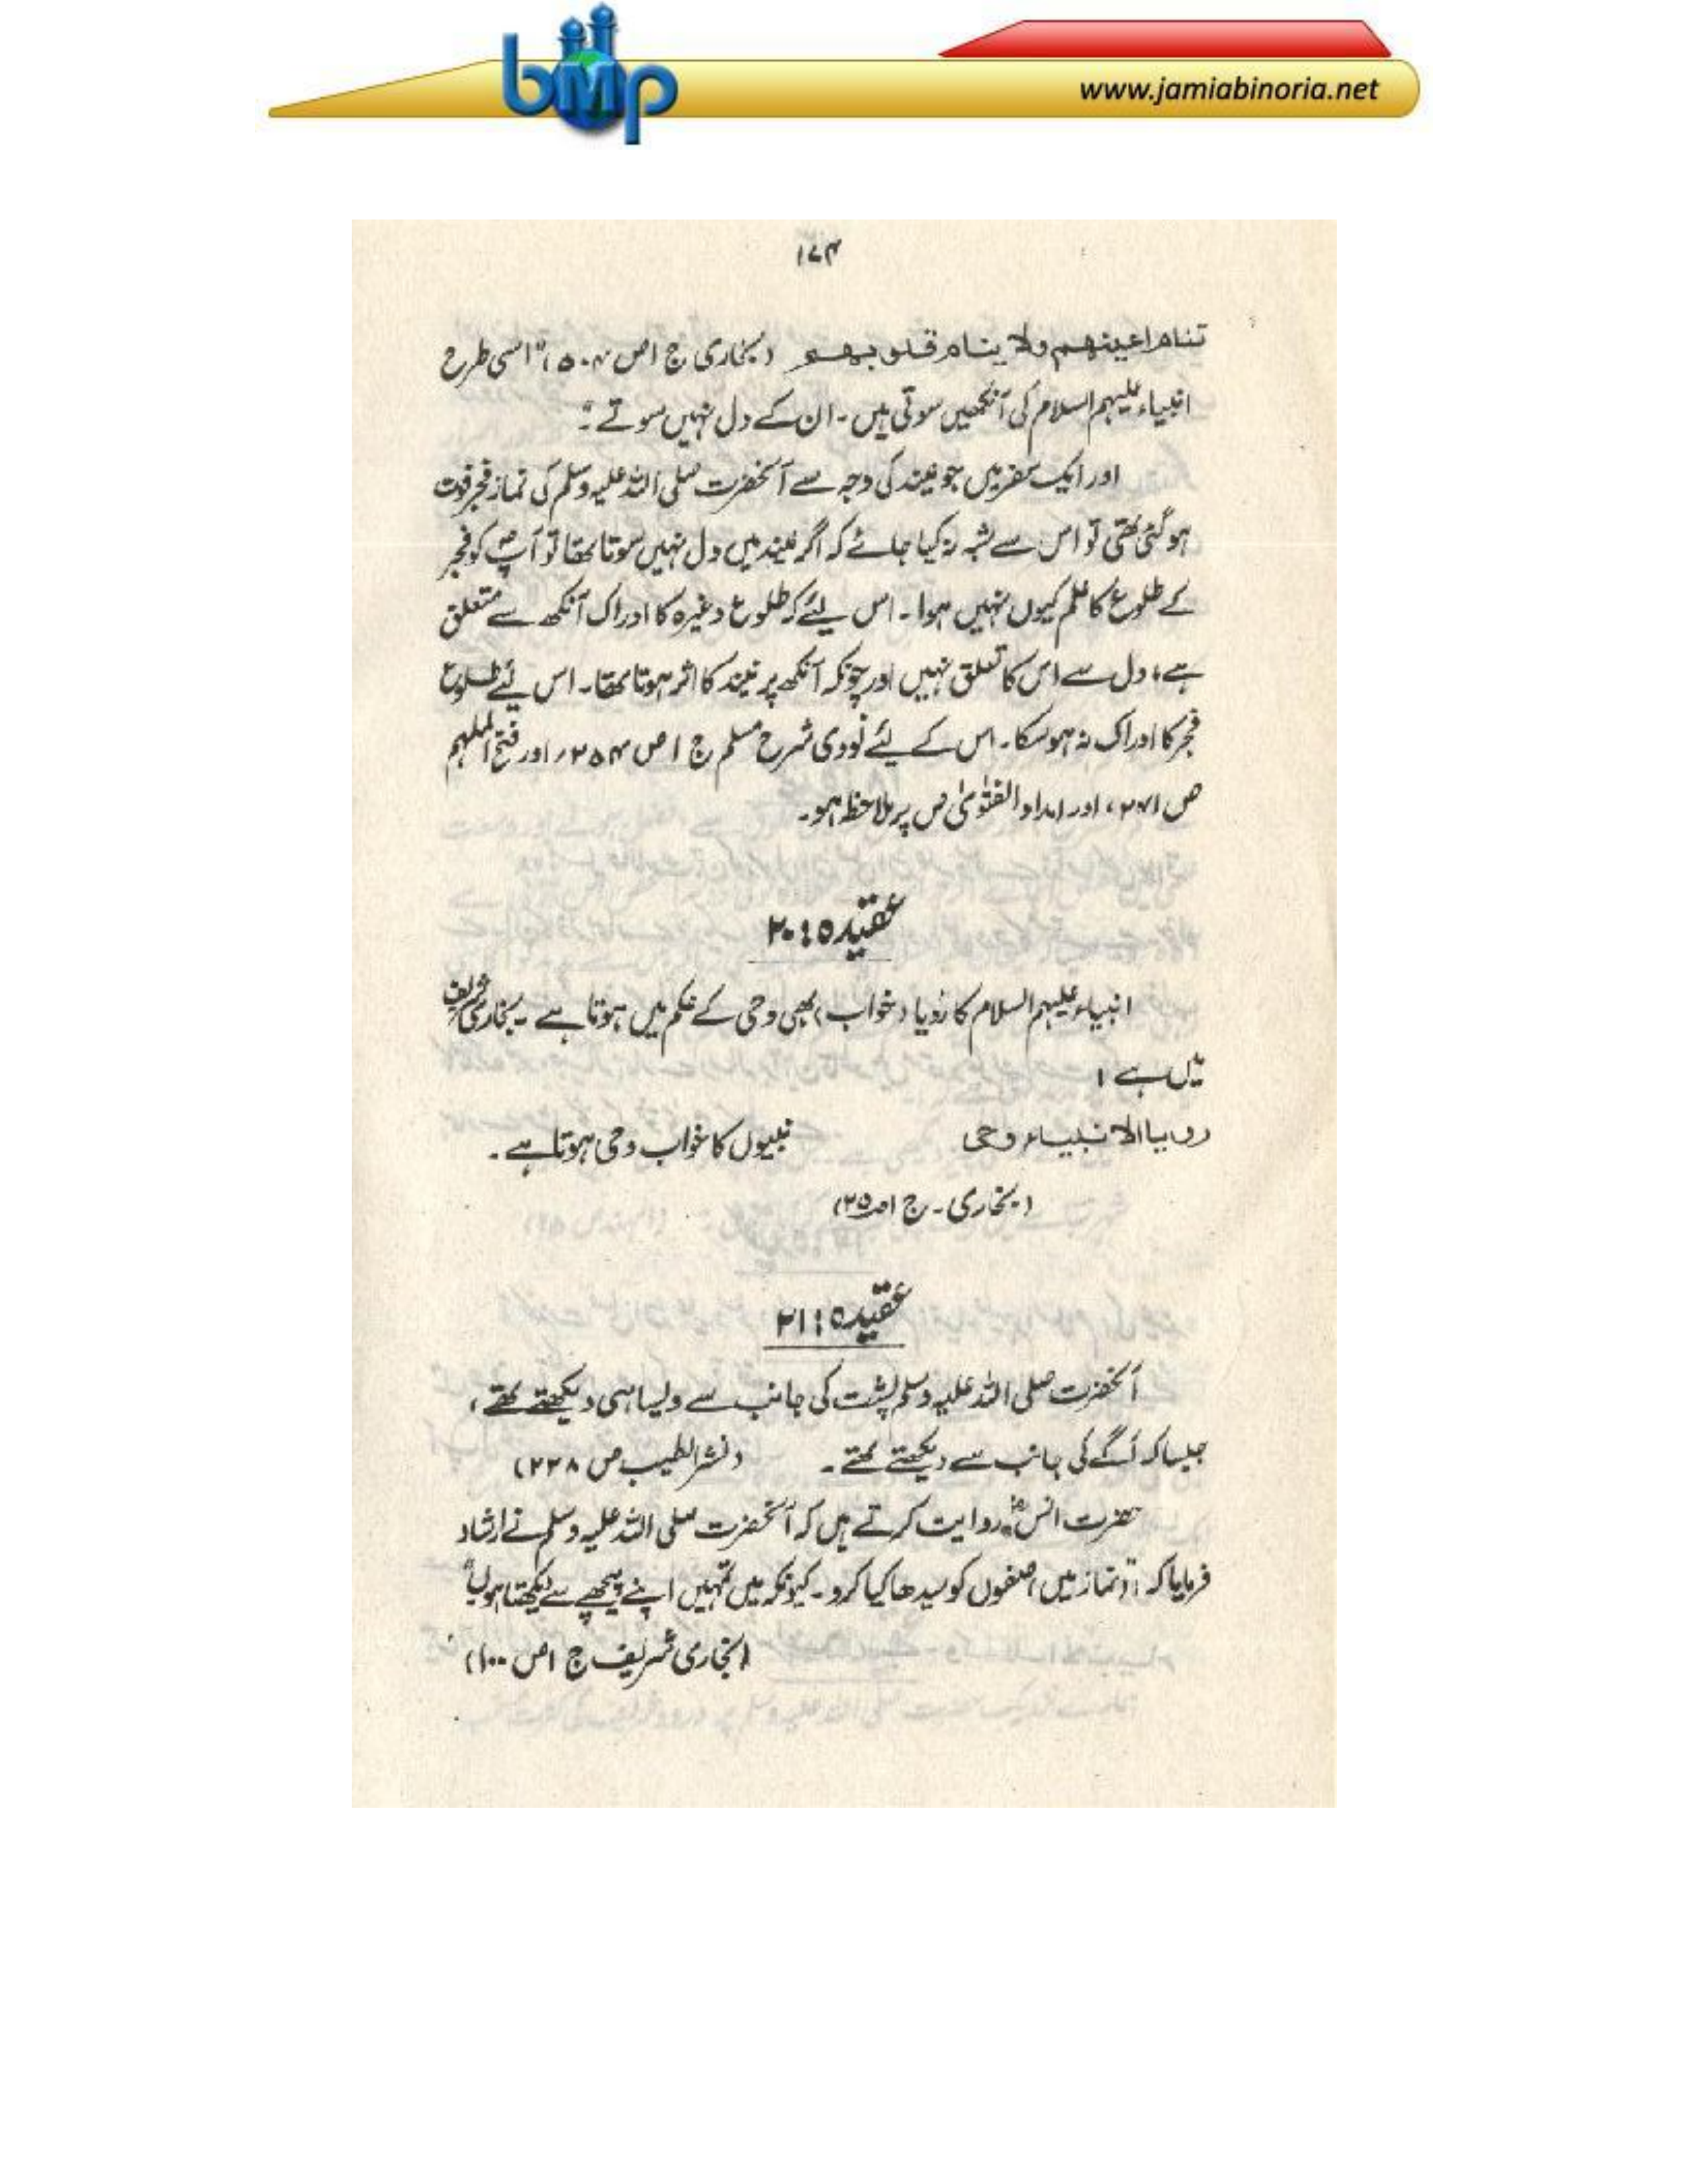 bmp
www.jamiabinoria.net
۱۷۴
تنام اعینھم ولا ینام قلوبھم (بخاری ج ۱ ص ۵۰۴) "اسی طرح
انبیاء علیہم السلام کی آنکھیں سوتی ہیں۔ ان کے دل نہیں سوتے"۔
اور ایک سفر میں جو نیند کی وجہ سے آنحضرت صلی اللہ علیہ وسلم کی نماز فجر فوت
ہو گئی تھی تو اس سے شبہ نہ کیا جائے کہ اگر نیند میں دل نہیں سوتا تھا تو آپؐ کو فجر
کے طلوع کا علم کیوں نہیں ہوا۔ اس لیئے کہ طلوع وغیرہ کا ادراک آنکھ سے متعلق
ہے، دل سے اس کا تعلق نہیں اور چونکہ آنکھ پر نیند کا اثر ہوتا تھا۔ اس لیئے طلوع
فجر کا ادراک نہ ہو سکا۔ اس کے لیئے نووی شرح مسلم ج ۱ ص ۲۵۴، اور فتح الملہم
ص ۲۷۱، اور امداد الفتوٰی ص پر ملاحظہ ہو۔
عقیدہ: ۲۰
انبیاء علیہم السلام کا رؤیا (خواب) بھی وحی کے حکم میں ہوتا ہے۔ بخاری شریف
میں ہے :
رویا الانبیاء وحی نبیوں کا خواب وحی ہوتا ہے۔
(بخاری۔ ج ۱ ص ۲۵)
عقیدہ: ۲۱
آنحضرت صلی اللہ علیہ وسلم پشت کی جانب سے ویسا ہی دیکھتے تھے،
جیسا کہ آگے کی جانب سے دیکھتے تھے۔ (نشر الطیب ص ۲۳۸)
حضرت انسؓ روایت کرتے ہیں کہ آنحضرت صلی اللہ علیہ وسلم نے ارشاد
فرمایا کہ "(نماز میں) صفوں کو سیدھا کیا کرو۔ کیونکہ میں تمہیں اپنے پیچھے سے دیکھتا ہوں"
(بخاری شریف ج ۱ ص ۱۰۰)